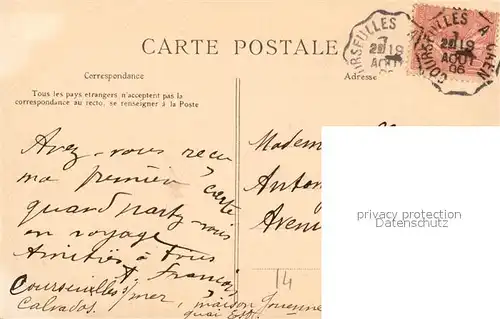 CARTE POSTALE
Correspondance
Tous les pays etrangers n'acceptent pas la
correspondance au recto, se renseigner à la Poste
Adresse
COURSEULLES A CAEN
7
2E 19
AOUT
06
Avez-vous recu
ma première
carte
quand partez-vous
en voyage
Amitiés à Tous
F. Francois
Courseulles s/mer,
Calvados.
maison Jouenne
quai Est.
Madem
Anton
Avenu
14
privacy protection
Datenschutz